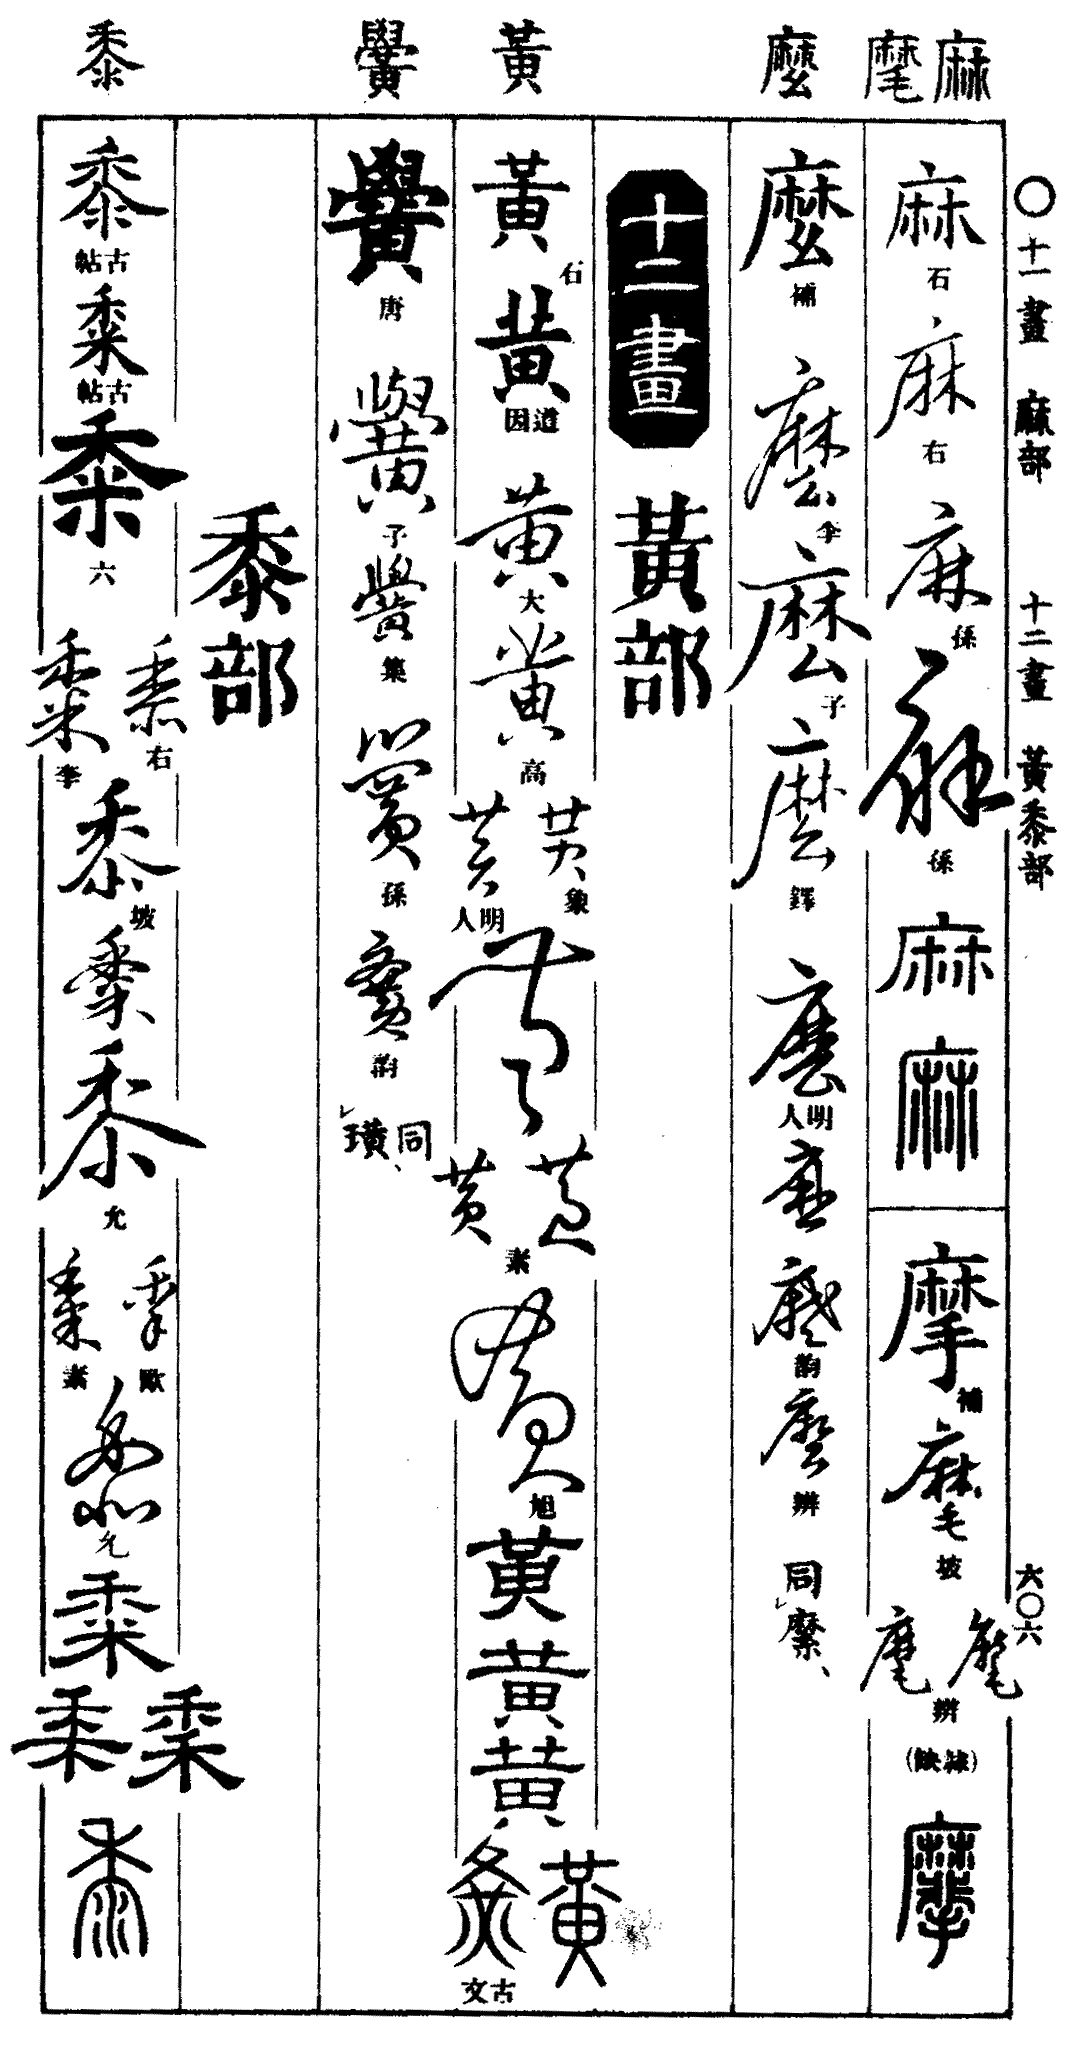 〇十一畫 麻部 十二畫 黃黍部 六〇六
麻 麾 麼 黃 黌 黍
麻 石 麻 右 麻 孫 麻 孫 麻 麻
摩 補 麾 坡 麾 麾 辨 (隸缺) 摩
麼 補 麼 李 麼 子 麼 鐸 麼 明人 麼 麼 韵 麼 辨 同麽、
十二畫 黃部
黃 石 黃 道因 黃 大 黃 高 黃 象 黃 明人 黃 黃 黃 素 黃 旭 黃 黃 黃 黃 古文
黌 唐 黌 子 黌 集 黌 孫 黌 韵 同璜、
黍部
黍 古帖 黍 古帖 黍 六 黍 右 黍 李 黍 坡 黍 黍 允 黍 歐 黍 素 黍 允 黍 黍 黍 黍